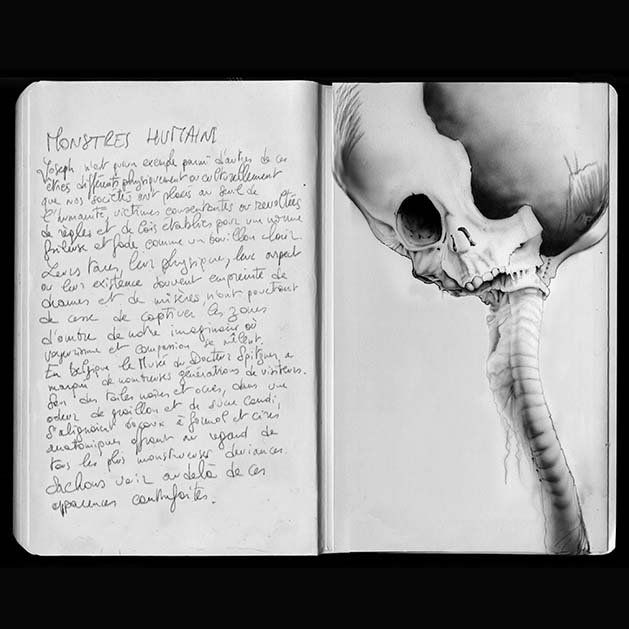 MONSTRES HUMAINS
Joseph n'est qu'un exemple parmi d'autres de ces
êtres différents physiquement ou culturellement
que nos sociétés ont placés au seuil de
l'humanité, victimes consentantes ou révoltées
de règles et de lois établies pour une norme
frileuse et fade comme un bouillon clair.
Leurs tares, leur physique, leur aspect
ou leur existence souvent empreinte de
drames et de misères n'ont pourtant
de cesse de captiver les zones
d'ombre de notre imaginaire où
voyeurisme et compassion se mêlent.
En Belgique le Musée du Docteur Spitzner a
marqué de nombreuses générations de visiteurs.
des toiles noires et ocres, dans une
odeur de graillon et de sucre candi,
s'alignaient bocaux à formol et cires
anatomiques offrant au regard de
tous les plus monstrueuses déviances.
Sachons voir au delà de ces
apparences contrefaites.